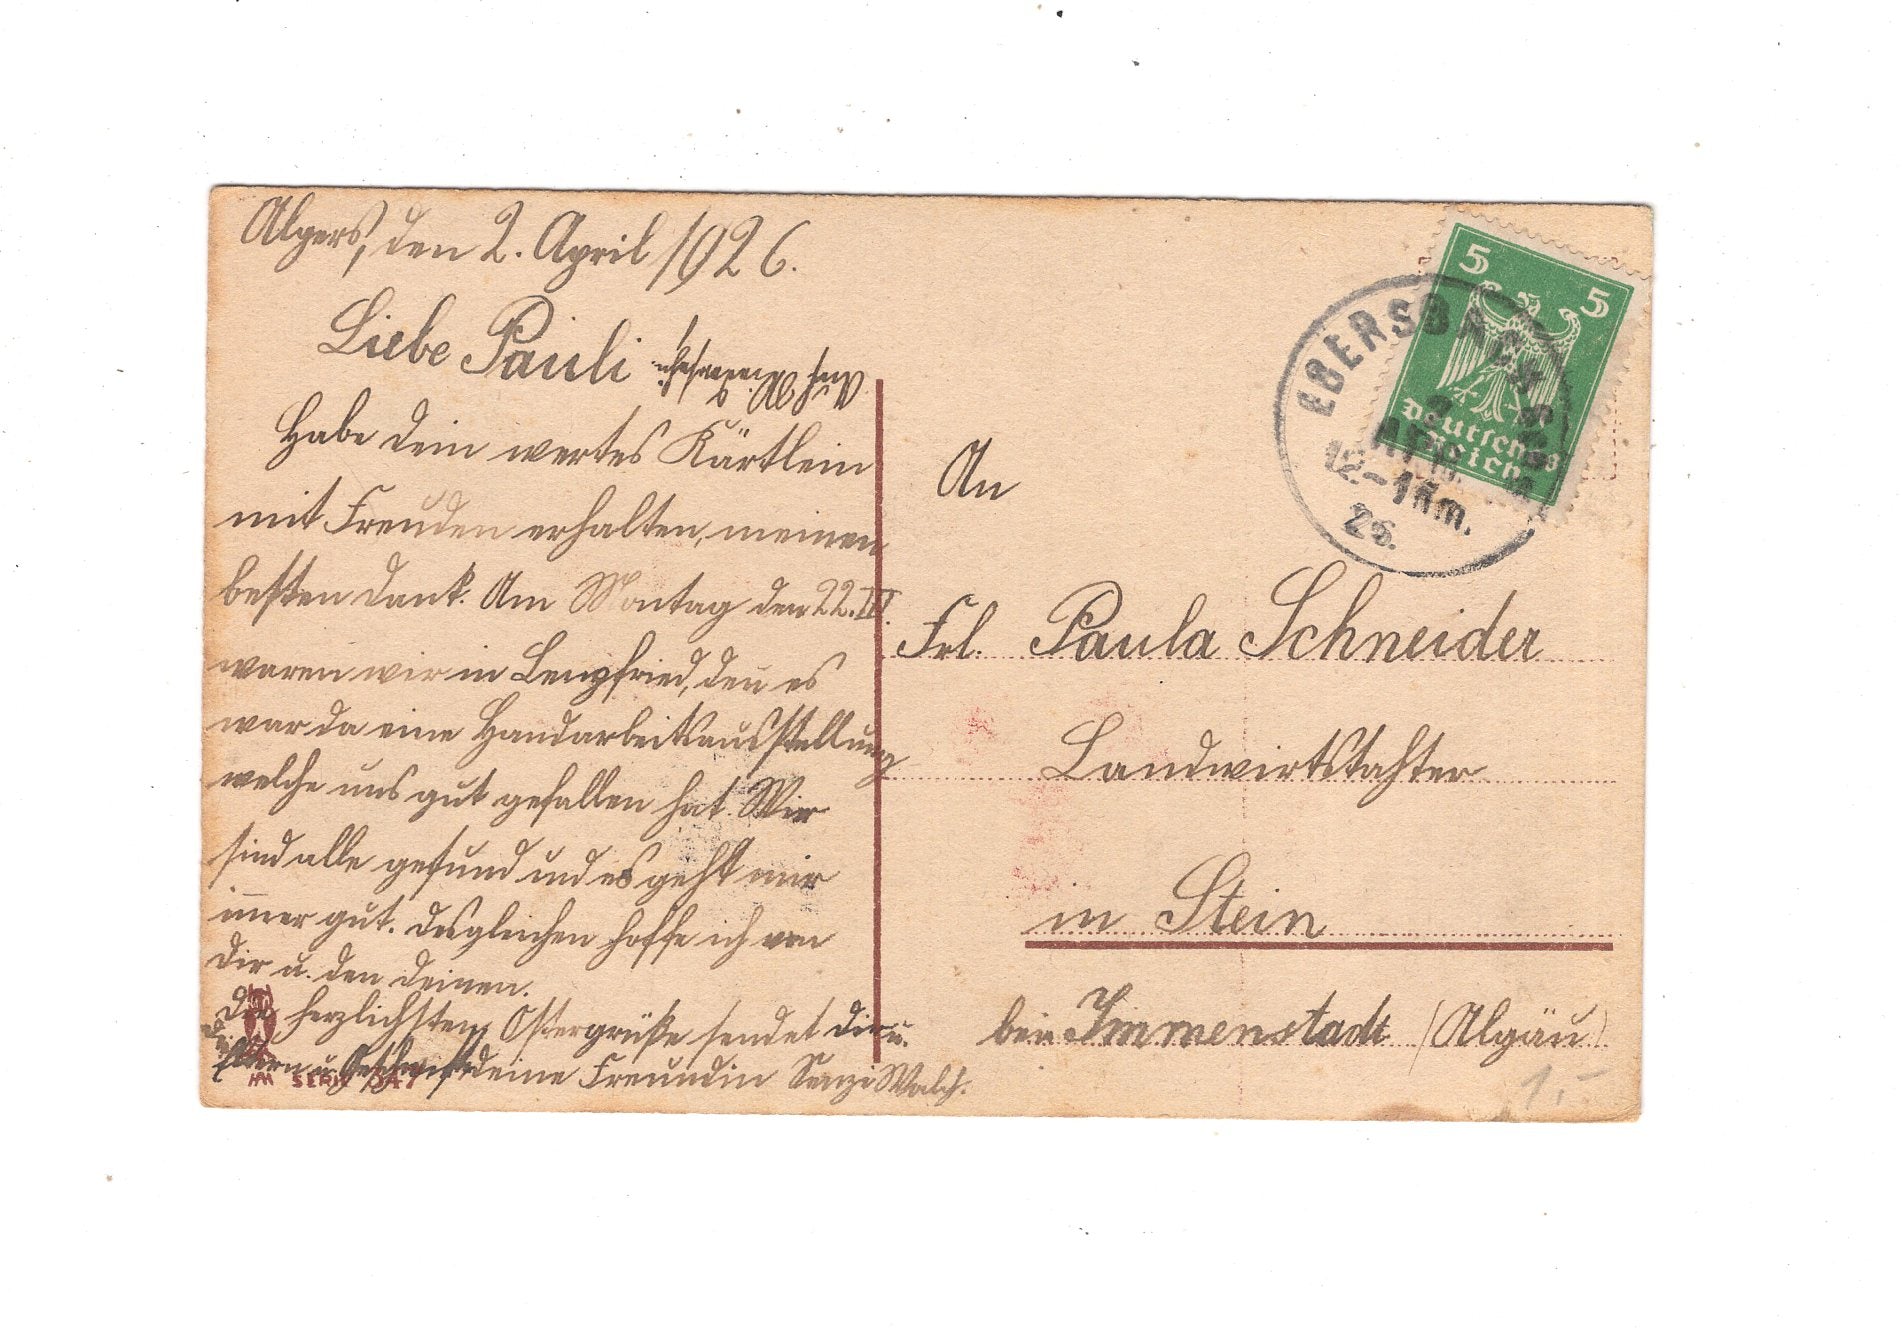 Algers, den 2. April 1926.
Liebe Pauli
Auf Wiedersehn!
Habe dein wertes Kärtlein
mit Freuden erhalten, meinen
besten Dank. Am Montag den 22. III.
waren wir in Lenzfried, den es
war da eine Handarbeitsausstellung
welche uns gut gefallen hat. Wir
sind alle gesund und es geht mir
im̅er gut. Desgleichen hoffe ich von
dir u. den deinen.
Die herzlichsten Ostergrüße sendet dir u.
Eltern u. Geschwister deine Freundin Senzi Walch.
SERIE 347
5 5
Deutsches
Reich
EBERSBACH
3
APR.
12-1 Nm.
26.
An
Frl. Paula Schneider
Landwirtstahter
in Stein
bei Immenstadt (Algäu)
1.-